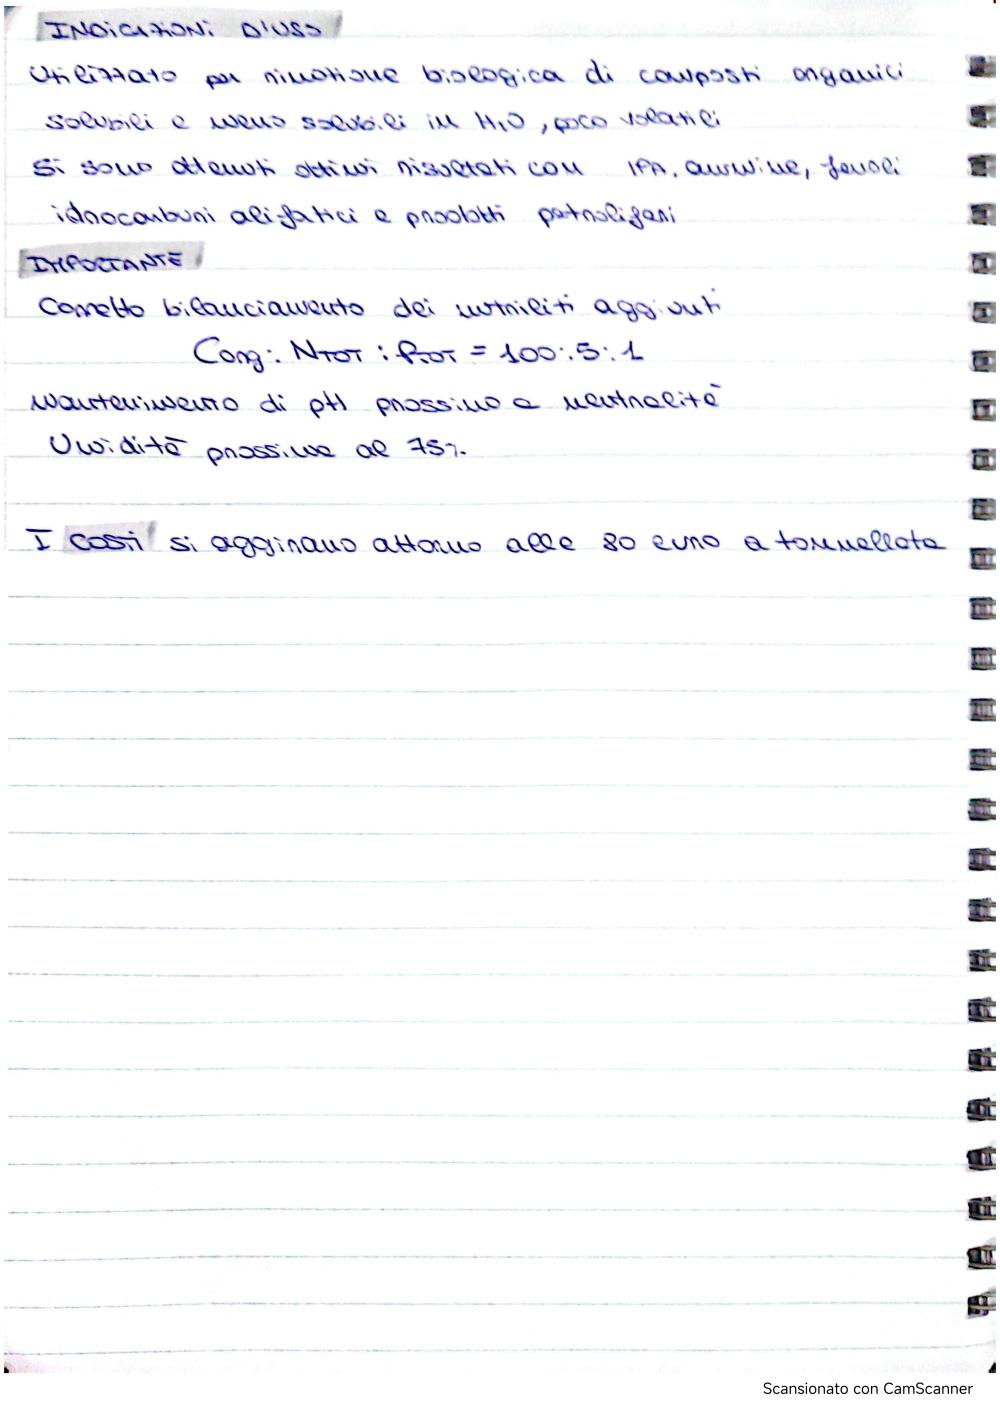 INDICAZIONI D'USO
Utilizzato per rimozione biologica di composti organici
solubili e meno solubili in H2O, poco volatili
Si sono ottenuti ottimi risultati con IPA, ammine, fenoli
idrocarburi alifatici e prodotti petroliferi
IMPORTANTE
Corretto bilanciamento dei nutrienti aggiunti
Corg: NTOT : PTOT = 100:5:1
Mantenimento di pH prossimo a neutralità
Umidità prossima al 75%
I costi si aggirano attorno alle 80 euro a tonnellata
Scansionato con CamScanner